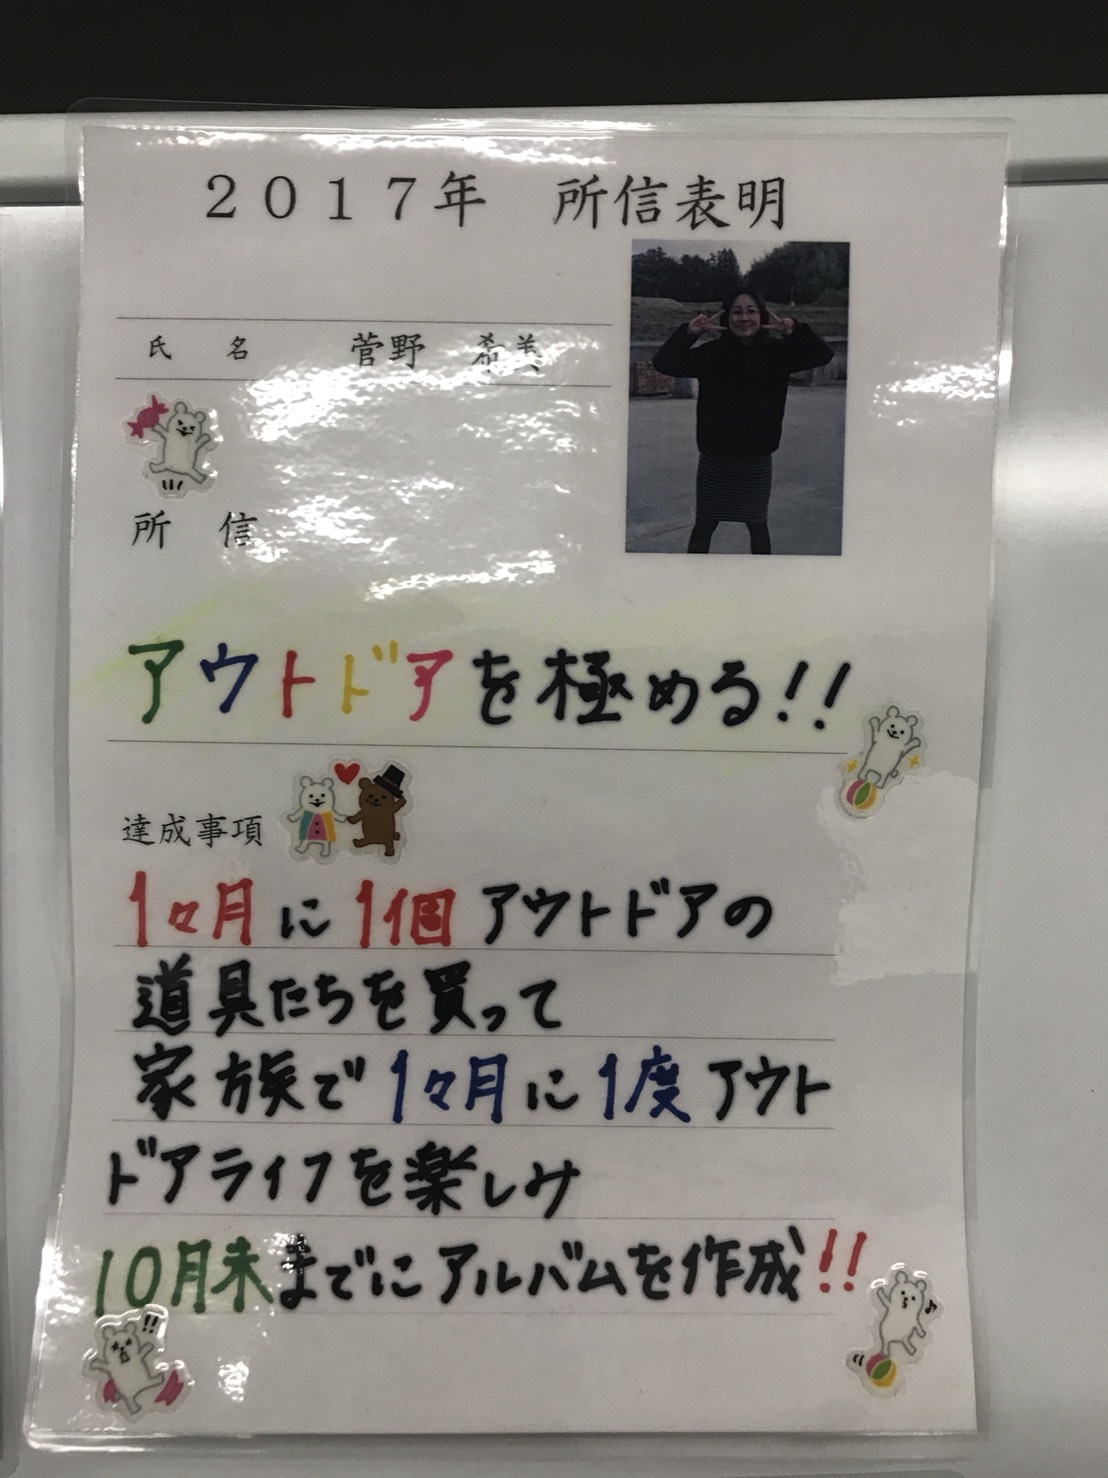 ２０１７年　所信表明
氏　名　菅野　希美
所　信
アウトドアを極める!!
達成事項
1々月に1個アウトドアの
道具たちを買って
家族で1々月に1度アウト
ドアライフを楽しみ
10月末までにアルバムを作成!!
!!